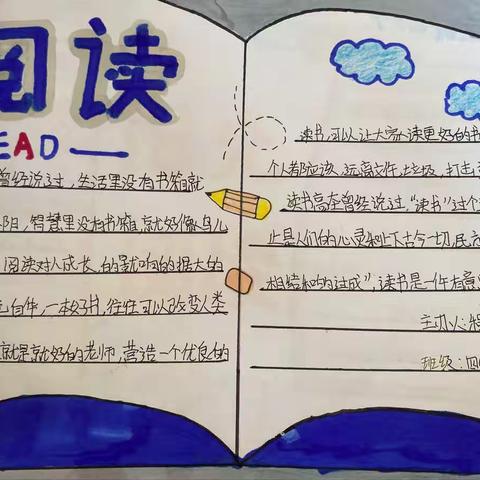 阅读
EAD
曾经说过，生活里没有书籍就
阳，智慧里没有书籍，就好像鸟儿
阅读对人成长，的影响的据大的
一本好书，往往可以改变人类
就是就好的老师，营造一个优良的
读书，可以让大家读更好的书
个人都应该，远离文件，垃圾，打击
读书高在曾经说过，“读书”这个
止是人们的心灵和上下古今一切民
相结和的过成”，读书是一件有意
主办人：
班级：四